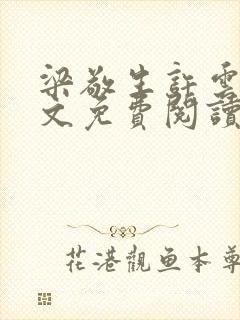 梁敬生許雲
文免費閱讀
花港觀鱼本尊